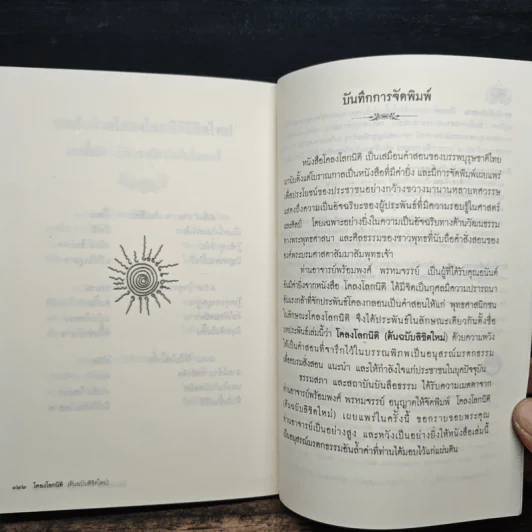 ๑๒๒ โคลงโลกนิติ (ต้นฉบับลิขิตใหม่)
บันทึกการจัดพิมพ์
หนังสือโคลงโลกนิติ เป็นเสมือนคำสอนของบรรพบุรุษชาติไทย
มานับตั้งแต่โบราณกาลเป็นหนังสือที่มีค่ายิ่ง และมีการจัดพิมพ์เผยแพร่
เพื่อประโยชน์ของประชาชนอย่างกว้างขวางมานานหลายทศวรรษ
แสดงถึงความเป็นอัจฉริยะของผู้ประพันธ์ที่มีความรอบรู้ในศาสตร์
และศิลป์ โดยเฉพาะอย่างยิ่งในความเป็นอัจฉริยทางด้านวัฒนธรรม
ทางพระพุทธศาสนา และศีลธรรมของชาวพุทธที่นับถือคำสั่งสอนของ
องค์พระบรมศาสดาสัมมาสัมพุทธเจ้า
ท่านอาจารย์พร้อมพงศ์ พรหมจรรย์ เป็นผู้ที่ได้รับคุณอนันต์
อันมีค่ายิ่งจากหนังสือ โคลงโลกนิติ ได้มีจิตเป็นกุศลมีความปรารถนา
อันแรงกล้าที่จักประพันธ์โคลงกลอนเป็นคำสอนให้แก่ พุทธศาสนิกชน
ในลักษณะโคลงโลกนิติ จึงได้ประพันธ์ในลักษณะเดียวกันตั้งชื่อ
บทประพันธ์เล่มนี้ว่า โคลงโลกนิติ (ต้นฉบับลิขิตใหม่) ด้วยความหวัง
ให้เป็นคำสอนที่จารึกไว้ในบรรณพิภพเป็นอนุสรณ์มรดกธรรม
เพื่ออบรมสั่งสอน แนะนำ และให้กำลังใจแก่ประชาชนในยุคปัจจุบัน
ธรรมสภา และสถาบันบันลือธรรม ได้รับความเมตตาจาก
ท่านอาจารย์พร้อมพงศ์ พรหมจรรย์ อนุญาตให้จัดพิมพ์ โคลงโลกนิติ
(ต้นฉบับลิขิตใหม่) เผยแพร่ในครั้งนี้ ขอกราบขอบพระคุณ
ท่านอาจารย์เป็นอย่างสูง และหวังเป็นอย่างยิ่งให้หนังสือเล่มนี้
เป็นอนุสรณ์มรดกธรรมอันล้ำค่าที่ท่านได้มอบไว้แก่แผ่นดิน